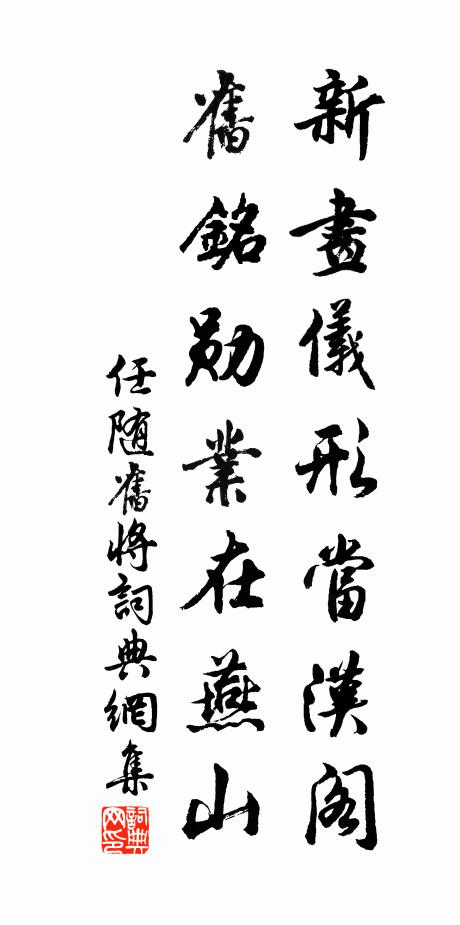 新畫儀形當漢閣
舊銘勛業在燕山
任随舊将詞典網集
詞典網印